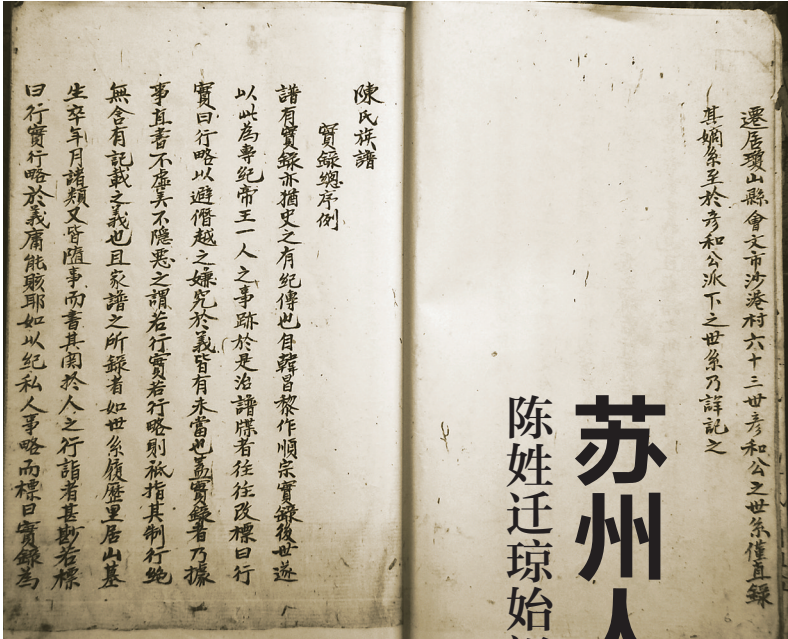 遷居瓊山縣會文市沙港村六十三世彦和公之世系僅直錄
其嫡系至於彦和公派下之世系乃詳記之
苏州人
陈姓迁琼始
陳氏族譜
實錄總序例
譜有實錄亦猶史之有紀傳也自韓昌黎作順宗實錄後世遂
以此為專紀帝王一人之事跡於是治譜牒者往往改標曰行
實曰行略以避僭越之嫌究於義皆有未當也蓋實錄者乃據
事直書不虛美不隱惡之謂若行實若行略則祇指其制行絶
無含有記載之義也且家譜之所錄者如世系履歷里居山墓
生卒年月諸類又皆隨事而書其関於人之行詣者甚尠若標
曰行實行略於義庸能賅耶如以紀私人事略而標曰實錄為